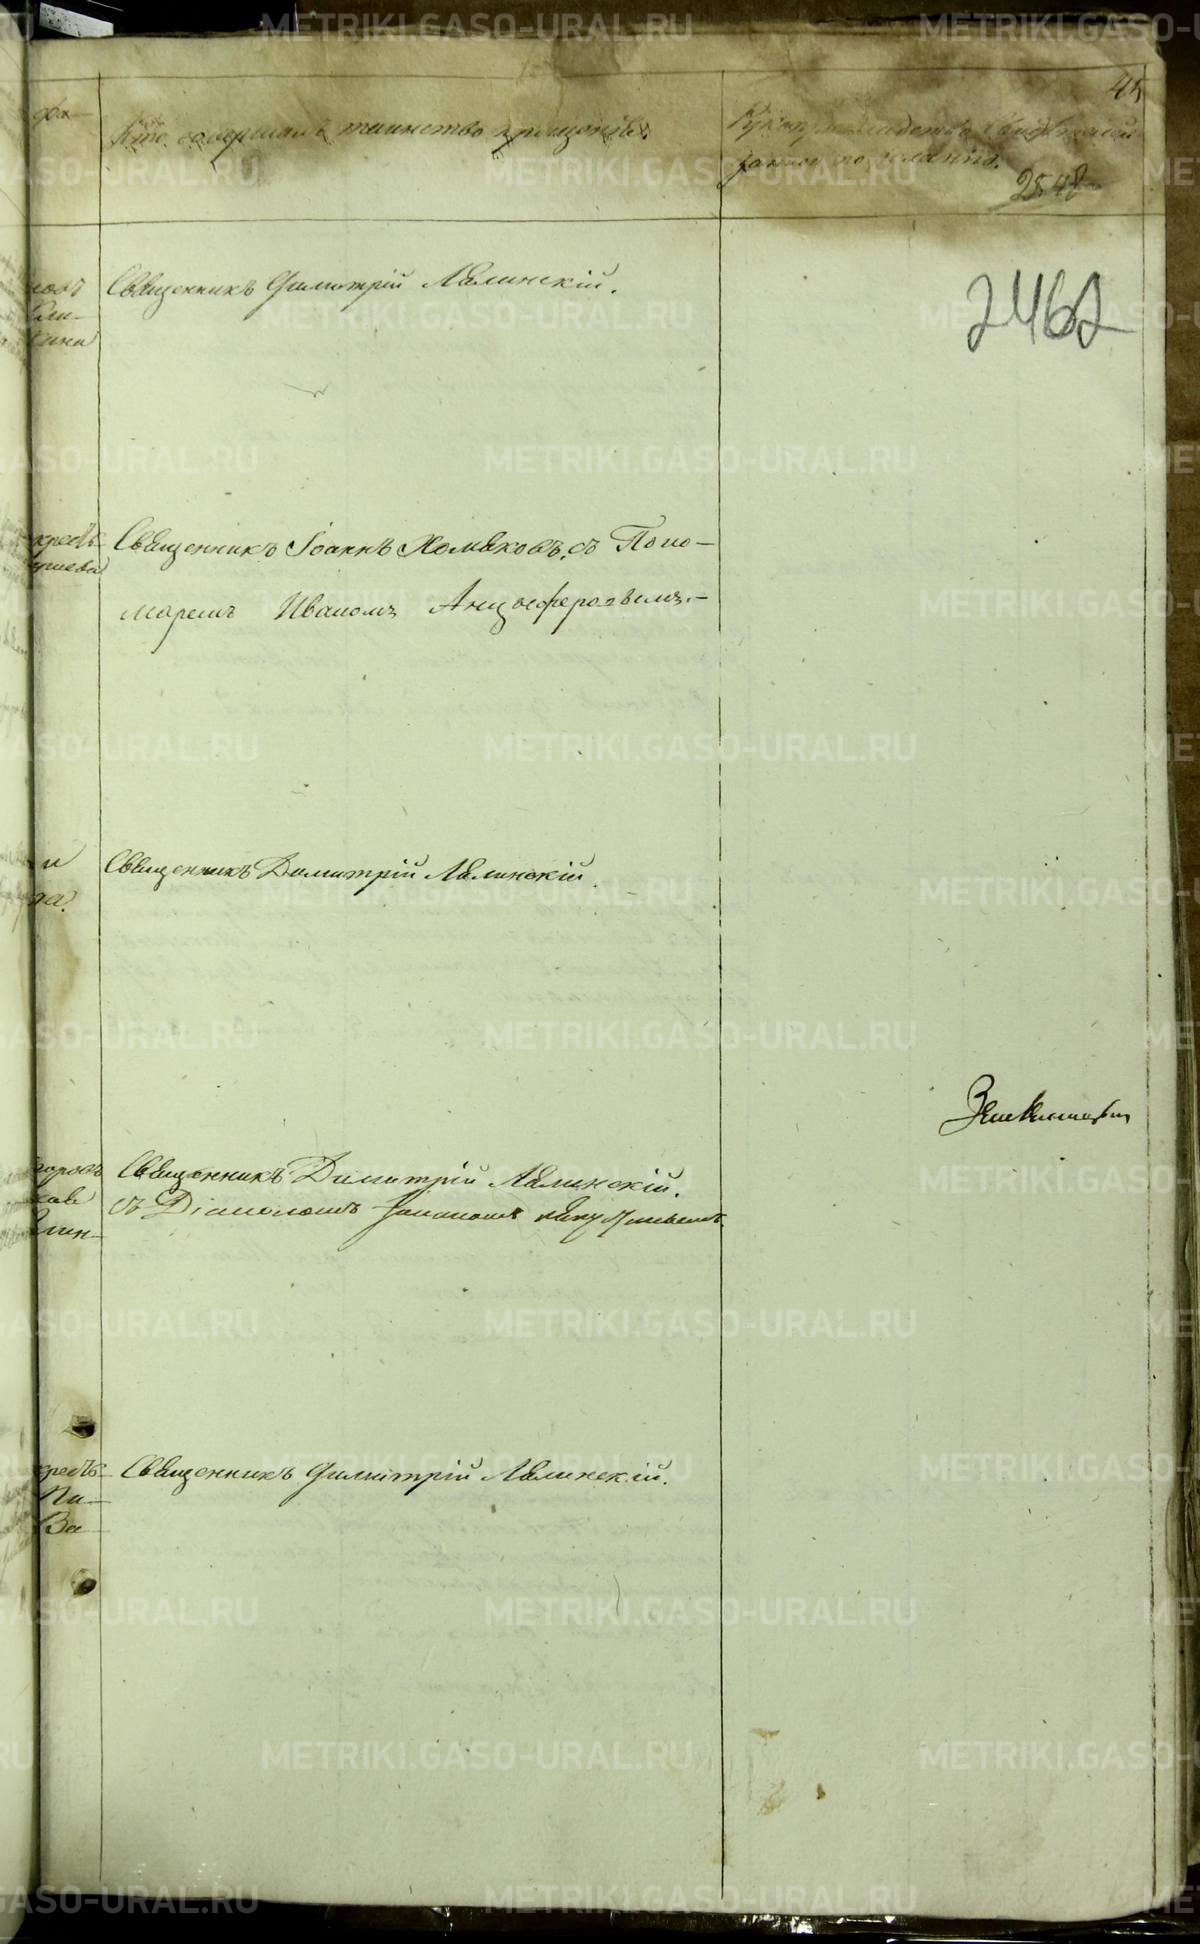 45
Кто совершалъ таинство крещенія.
Рукоприкладство свидѣтелей
записи по желанію.
2548
2462
Священникъ Димитрій Лялинскій.
Священникъ Іоаннъ Хомяковъ, съ Поно-
маремъ Иваномъ Анцыферовымъ.
Священникъ Димитрій Лялинскій.
Священникъ Димитрій Лялинскій.
съ Діакономъ
Священникъ Димитрій Лялинскій.
METRIKI.GASO-URAL.RU